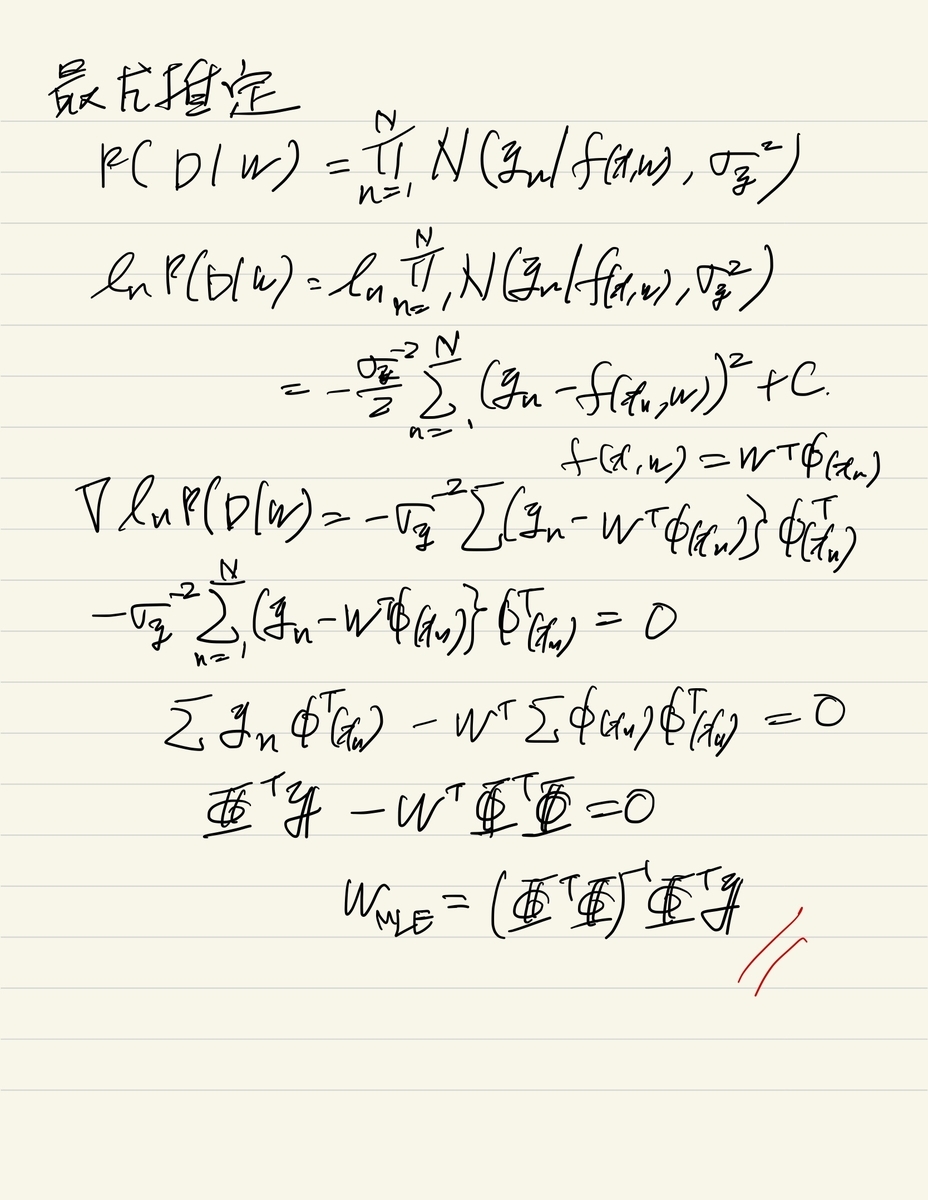 最尤推定
P(D|w) = ∏_{n=1}^{N} N(y_n | f(x,w), σ_y^2)
ln P(D|w) = ln ∏_{n=1}^{N} N(y_n | f(x,w), σ_y^2)
= -\frac{σ_y^{-2}}{2} ∑_{n=1}^{N} (y_n - f(x_n,w))^2 + C.
f(x,w) = w^T φ(x_n)
∇ ln P(D|w) = -σ_y^{-2} ∑ {y_n - w^T φ(x_n)} φ^T(x_n)
-σ_y^{-2} ∑_{n=1}^{N} {y_n - w^T φ(x_n)} φ^T(x_n) = 0
∑ y_n φ^T(x_n) - w^T ∑ φ(x_n) φ^T(x_n) = 0
Φ^T y - w^T Φ^T Φ = 0
w_{MLE} = (Φ^T Φ)^{-1} Φ^T y